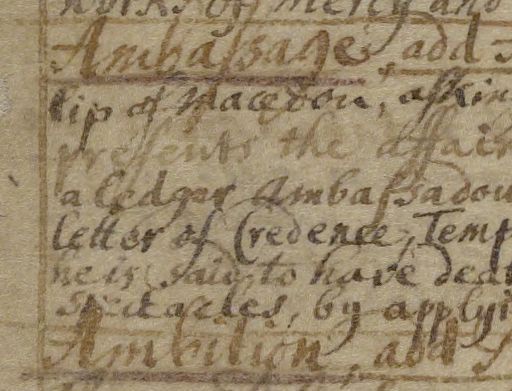 works of mercy and
Ambassage, add
lip of Macedon, askin
presents the affair
a Ledger Ambassadou
letter of Credence, Temp
he is said, to have deal
Spectacles, by applyi
Ambition, add S